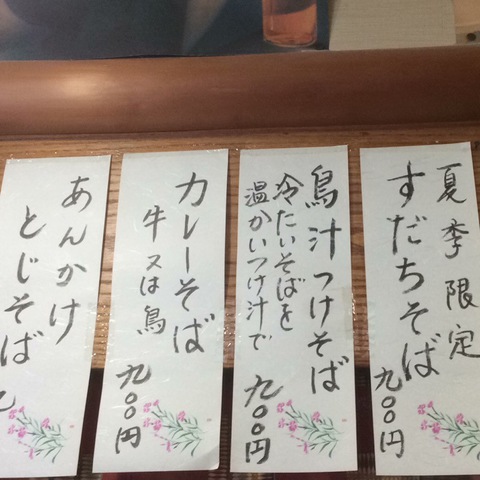 夏季限定
すだちそば
九〇〇円
鳥汁つけそば
冷たいそばを
温かいつけ汁で
九〇〇円
カレーそば
牛又は鳥
九〇〇円
あんかけ
とじそば